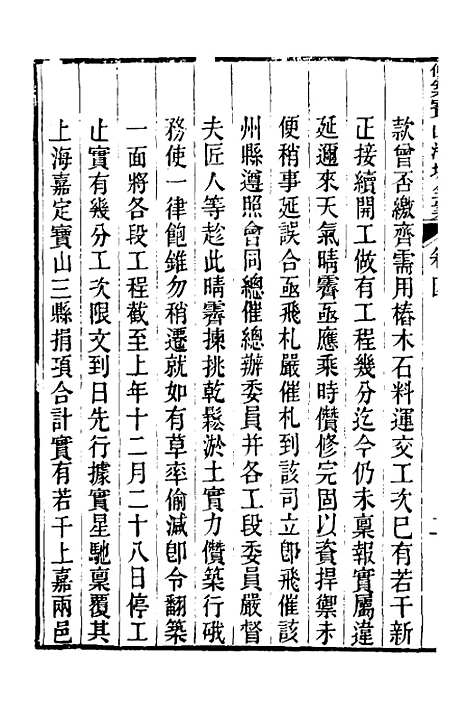 款曾否繳齊需用樁木石料運交工次已有若干新
正接續開工做有工程幾分迄今仍未稟報實屬違
延邇來天氣晴霽亟應乘時儹修完固以資捍禦未
便稍事延誤合亟飛札嚴催札到該司立卽飛催該
州縣遵照會同總催總辦委員幷各工段委員嚴督
夫匠人等趁此晴霽揀挑乾鬆淤土實力儹築行硪
務使一律飽錐勿稍遷就如有草率偷減卽令翻築
一面將各段工程截至上年十二月二十八日停工
止實有幾分工次限文到日先行據實星馳稟覆其
上海嘉定寶山三縣捐項合計實有若干上嘉兩邑